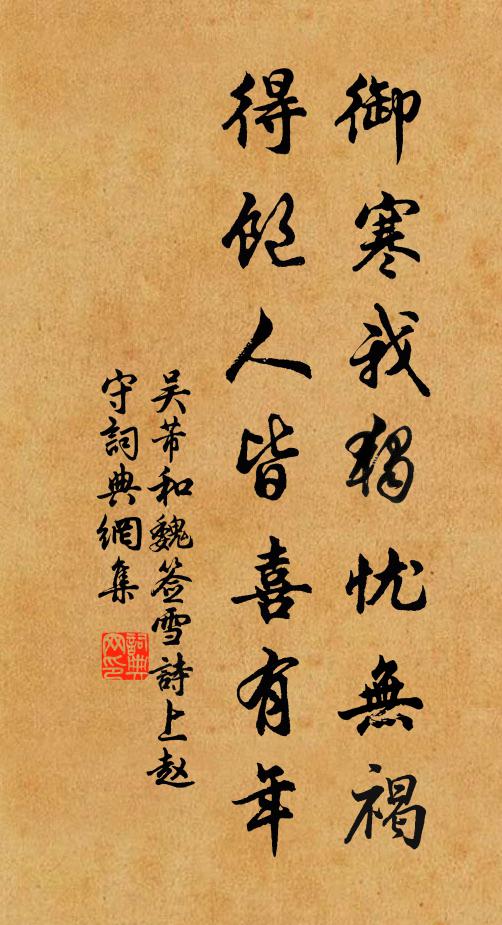 御寒我獨忧無褐
得飽人皆喜有年
吴芾和魏签雪詩上赵
守詞典網集
詞典网印